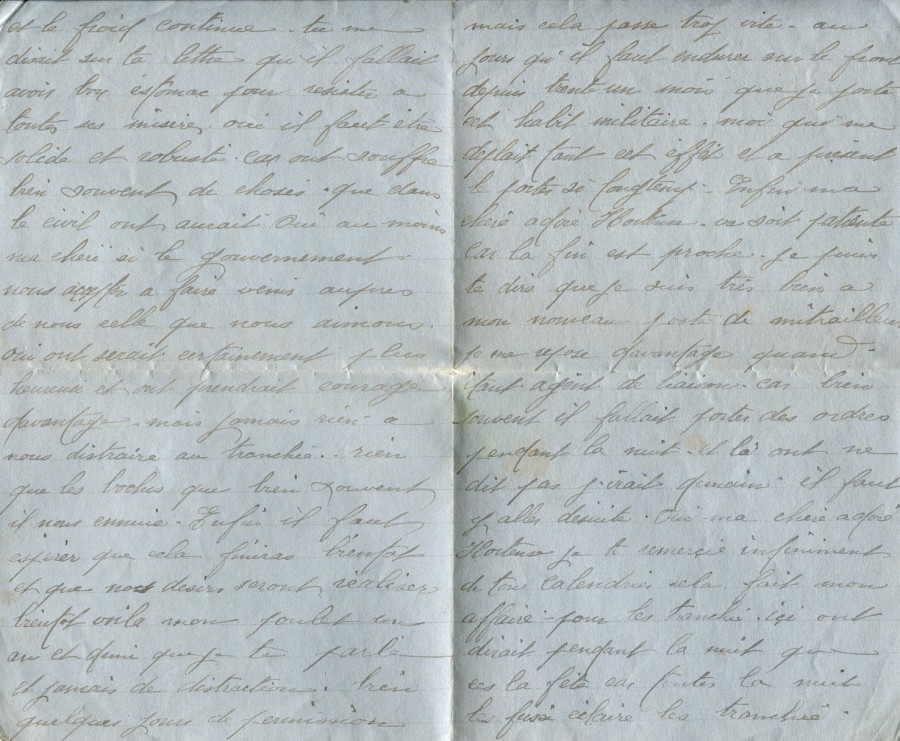 et le froid continue. tu me
disait sur ta lettre qu'il fallait
avoir bon estomac pour resister a
toutes ses misire. oui il faut être
solide et robuste. car ont souffre
bien souvent de choses. que dans
le civil ont aurait Oui au moins
ma cheri si le gouvernement
nous a faire venir aupres
de nous celle que nous aimons.
oui ont serait certainement plus
heureuse et ont prendrait courage
davantage. mais jamais rien a
nous distraire au tranchée.. rien
que les boches que bien souvent
il nous ennuie. Enfin il faut
espérer que cela finiras bientot
et que nos desirs seront réaliser
bientot voila mon poulet un
an et demi que je te parle
et jamais de distraction. bien
quelques jours de permission
mais cela passe trop vite. au
jours qu'il faut endurer sur le front
depuis trente un mois que je porte
cet habit militaire. moi que me
deplait tant cet effet et a présent
le porter si longtemp. Enfin ma
cheré adoré Hortense. va soit patiente
car la fin est proche. Je puis
te dire que je suis très bien a
mon nouveau poste de mitrailleur
je me repose davantage quand
étant agent de liaison. car bien
souvent il fallait porter des ordres
pendant la nuit. et là ont ne
dit pas j'irait demain. il faut
y aller desuite. Oui ma cheré adoré
Hortense je te remercie infiniment
de ton calendrier sela fait mon
affaire. pour les tranchée. ici ont
dirait pendant la nuit que
ces la fête car toutes la nuit
les fusé éclaire les tranchée.